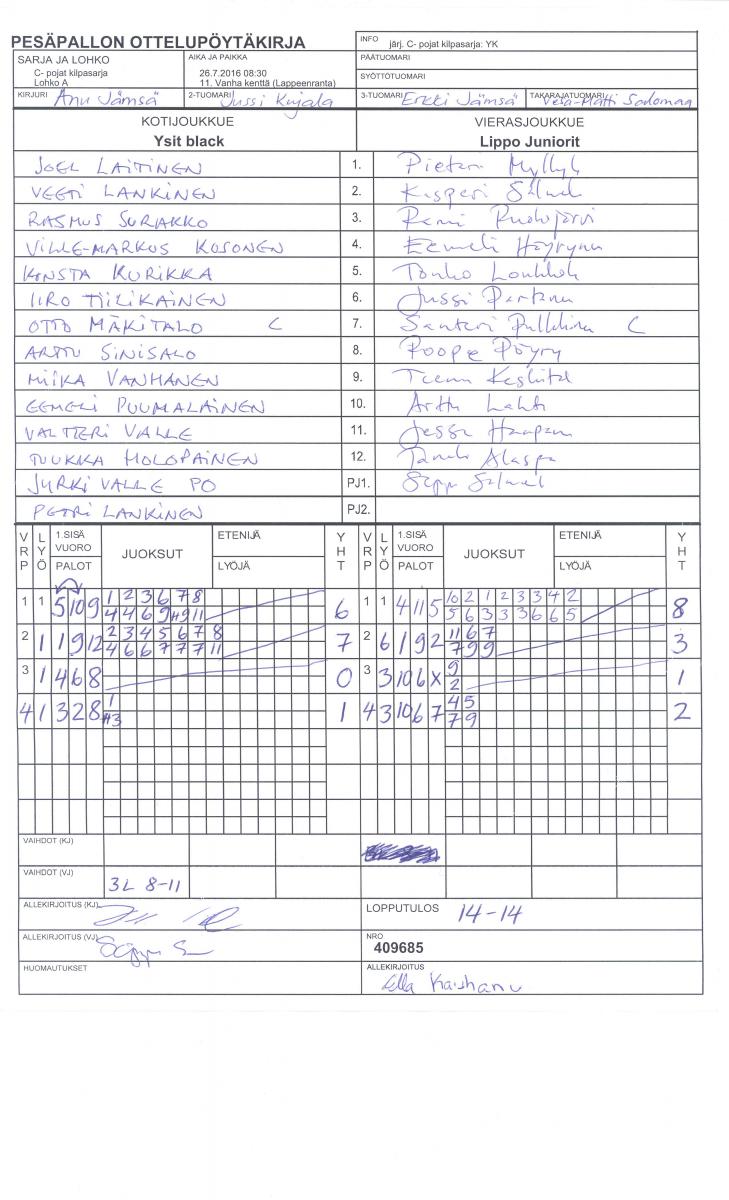 PESÄPALLON OTTELUPÖYTÄKIRJA
INFO järj. C- pojat kilpasarja: YK
SARJA JA LOHKO
C- pojat kilpasarja
Lohko A
AIKA JA PAIKKA
26.7.2016 08:30
11. Vanha kenttä (Lappeenranta)
PÄÄTUOMARI
SYÖTTÖTUOMARI
KIRJURI Anu Jämsä 2-TUOMARI Jussi Kujala 3-TUOMARI Erkki Jämsä TAKARAJATUOMARI Vesa-Matti
KOTIJOUKKUE VIERASJOUKKUE
Ysit black Lippo Juniorit
JOEL LAITINEN 1. Pietari
VEETI LANKINEN 2. Kasperi
RASMUS SURAKKO 3. Rami
VILLE-MARKUS KOSONEN 4. Eemeli
KONSTA KURIKKA 5.
IIRO TIILIKAINEN 6. Jussi
OTTO MÄKITALO C 7. Santeri C
ARTTU SINISALO 8. Roope Pöyry
MIIKA VANHANEN 9.
EEMELI PUUMALAINEN 10. Arttu Lahti
VALTTERI VALLE 11.
TUUKKA HOLOPAINEN 12.
JYRKI VALLE PO PJ1.
PETRI LANKINEN PJ2.
VRP LYÖ 1.SISÄ VUORO PALOT JUOKSUT ETENIJÄ LYÖJÄ YHT VRP LYÖ 1.SISÄ VUORO PALOT JUOKSUT ETENIJÄ LYÖJÄ YHT
1 1 5 10 9 1 2 3 6 7 8 6 1 1 4 11 5 10 2 1 2 3 3 4 2 8
4 4 6 9 11 5 6 3 3 3 6 6 5
2 1 1 9 12 2 3 4 5 6 7 8 7 2 6 1 9 2 11 6 7 3
4 6 6 7 7 7 11 7 9 9
3 1 4 6 8 0 3 3 10 6 X 9 1
2
4 1 3 2 8 1 1 4 3 10 6 7 4 5 2
#3 7 9
VAIHDOT (KJ)
VAIHDOT (VJ) 3L 8-11
ALLEKIRJOITUS (KJ) LOPPUTULOS 14-14
ALLEKIRJOITUS (VJ) NRO
409685
HUOMAUTUKSET ALLEKIRJOITUS